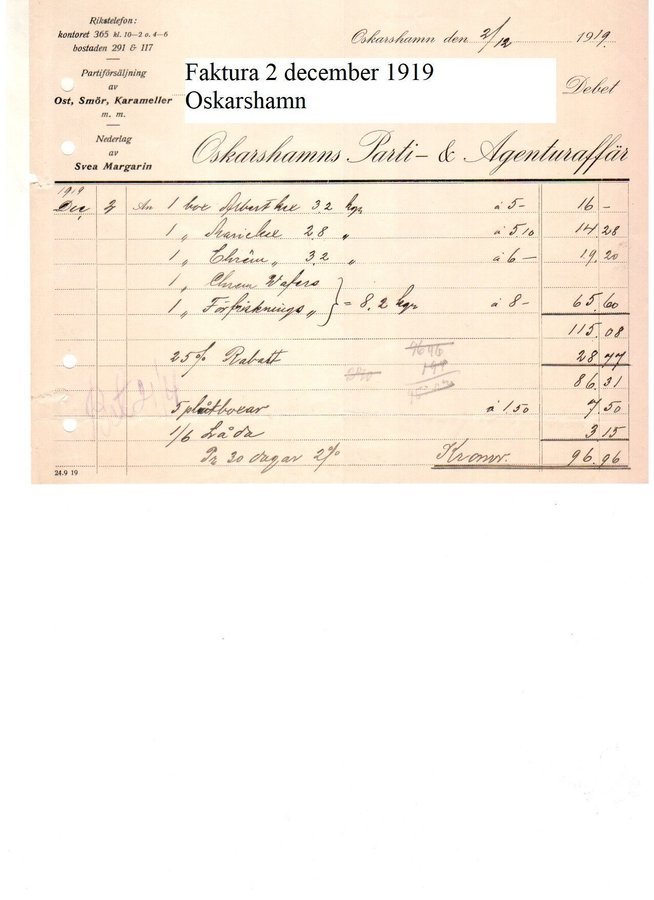 Rikstelefon:
kontoret 365 kl. 10–2 o. 4–6
bostaden 291 & 117
Partiförsäljning
av
Ost, Smör, Karameller
m. m.
Nederlag
av
Svea Margarin
Oskarshamn den 2/12 1919.
Faktura 2 december 1919
Oskarshamn
Debet
Oskarshamns Parti- & Agenturaffär
1919
Dec. 2 An 1 box Albertkex 3.2 kgr. á 5- 16 -
1 „ Mariekex 2.8 „ á 5 10 14 28
1 „ Chrêm „ 3.2 „ á 6 – 19.20
1 „ Chrem Wafers
1 „ Förfrisknings „ } = 8.2 kgr á 8 - 65.60
115.08
25% Rabatt 28.77
86.31
5 plåtboxar á 1 50 7.50
1/6 Låda 3.15
Pr 30 dagar 2% Kronor. 96.96
24.9 19